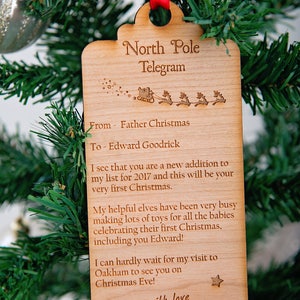 North Pole
Telegram
From - Father Christmas
To - Edward Goodrick
I see that you are a new addition to
my list for 2017 and this will be your
very first Christmas.
My helpful elves have been very busy
making lots of toys for all the babies
celebrating their first Christmas,
including you Edward!
I can hardly wait for my visit to
Oakham to see you on
Christmas Eve!
with love